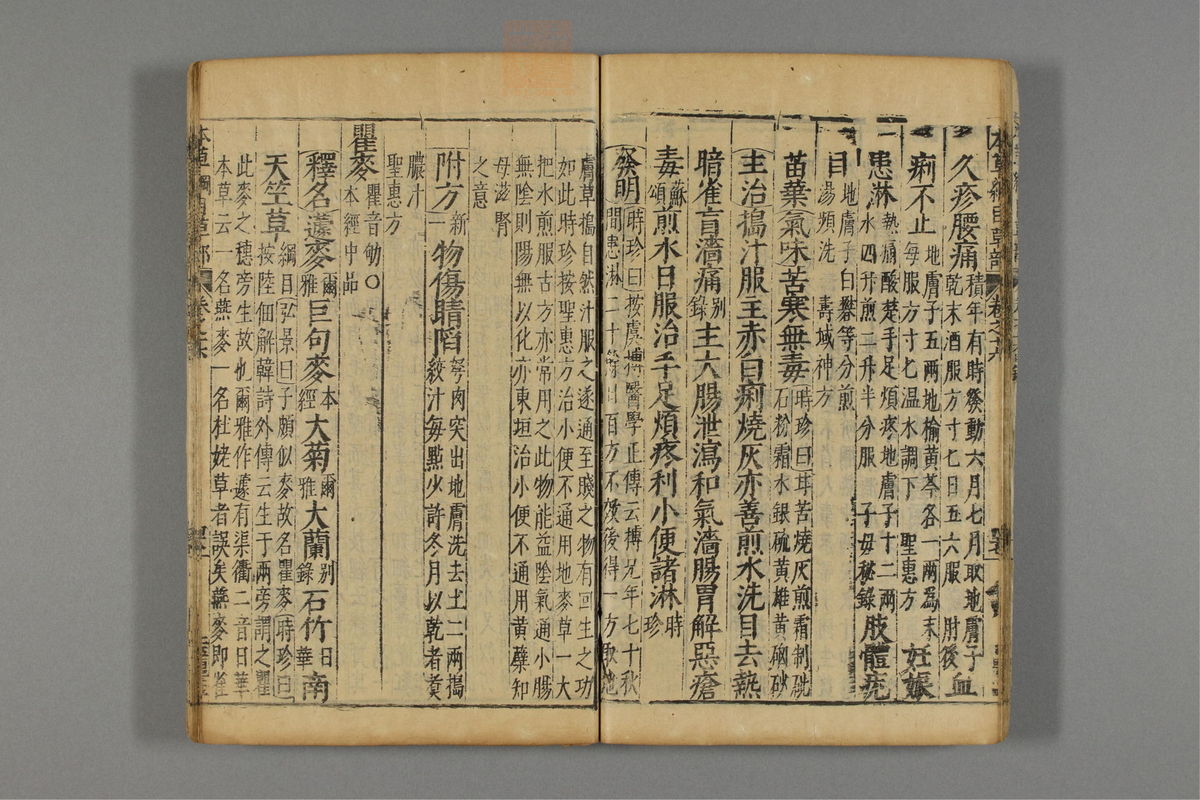 本草綱目草部 卷之十六
久疹腰痛積年有時發動六月七月取地膚子
乾末酒服方寸七日五六服 肘後 血
痢不止地膚子五兩地榆黃芩各一兩爲末
每服方寸七温水調下 聖惠方 妊娠
患淋熱痛酸楚手足煩疼地膚子十二兩
水四升煎二升半分服 子母秘錄 肢體疣
目地膚子白礬等分煎
湯頻洗 壽域神方
苗葉氣味苦寒無毒時珍曰耳苦燒灰煎霜制砒
石粉霜水銀硫黃雄黃硇砂
主治搗汁服主赤白痢燒灰亦善煎水洗目去熱
暗雀盲濇痛别錄主大腸泄瀉和氣濇腸胃解惡瘡
毒蘇頌煎水日服治手足煩疼利小便諸淋時珍
發明時珍曰按虞摶醫學正傳云摶兄年七十秋
間患淋二十餘日百方不效後得一方取地
膚草搗自然汁服之遂通至賤之物有回生之功
如此時珍按聖惠方治小便不通用地麥草一大
把水煎服古方亦常用之此物能益陰氣通小腸
無陰則陽無以化亦東垣治小便不通用黃蘗知
母滋腎
之意
附方新一物傷睛陷弩肉突出地膚洗去土二兩搗
絞汁每點少許冬月以乾者煑
膿汁
聖惠方
瞿麥瞿音劬〇
本經中品
釋名蘧麥爾雅巨句麥本經大菊爾雅大蘭别錄石竹日華南
天竺草綱目弘景曰子頗似麥故名瞿麥時珍曰
按陸佃解韓詩外傳云生于兩旁謂之瞿
此麥之穗旁生故也爾雅作蘧有渠衢二音日華
本草云一名燕麥一名杜姥草者誤矣燕麥即雀
本草綱目草部 卷之十六